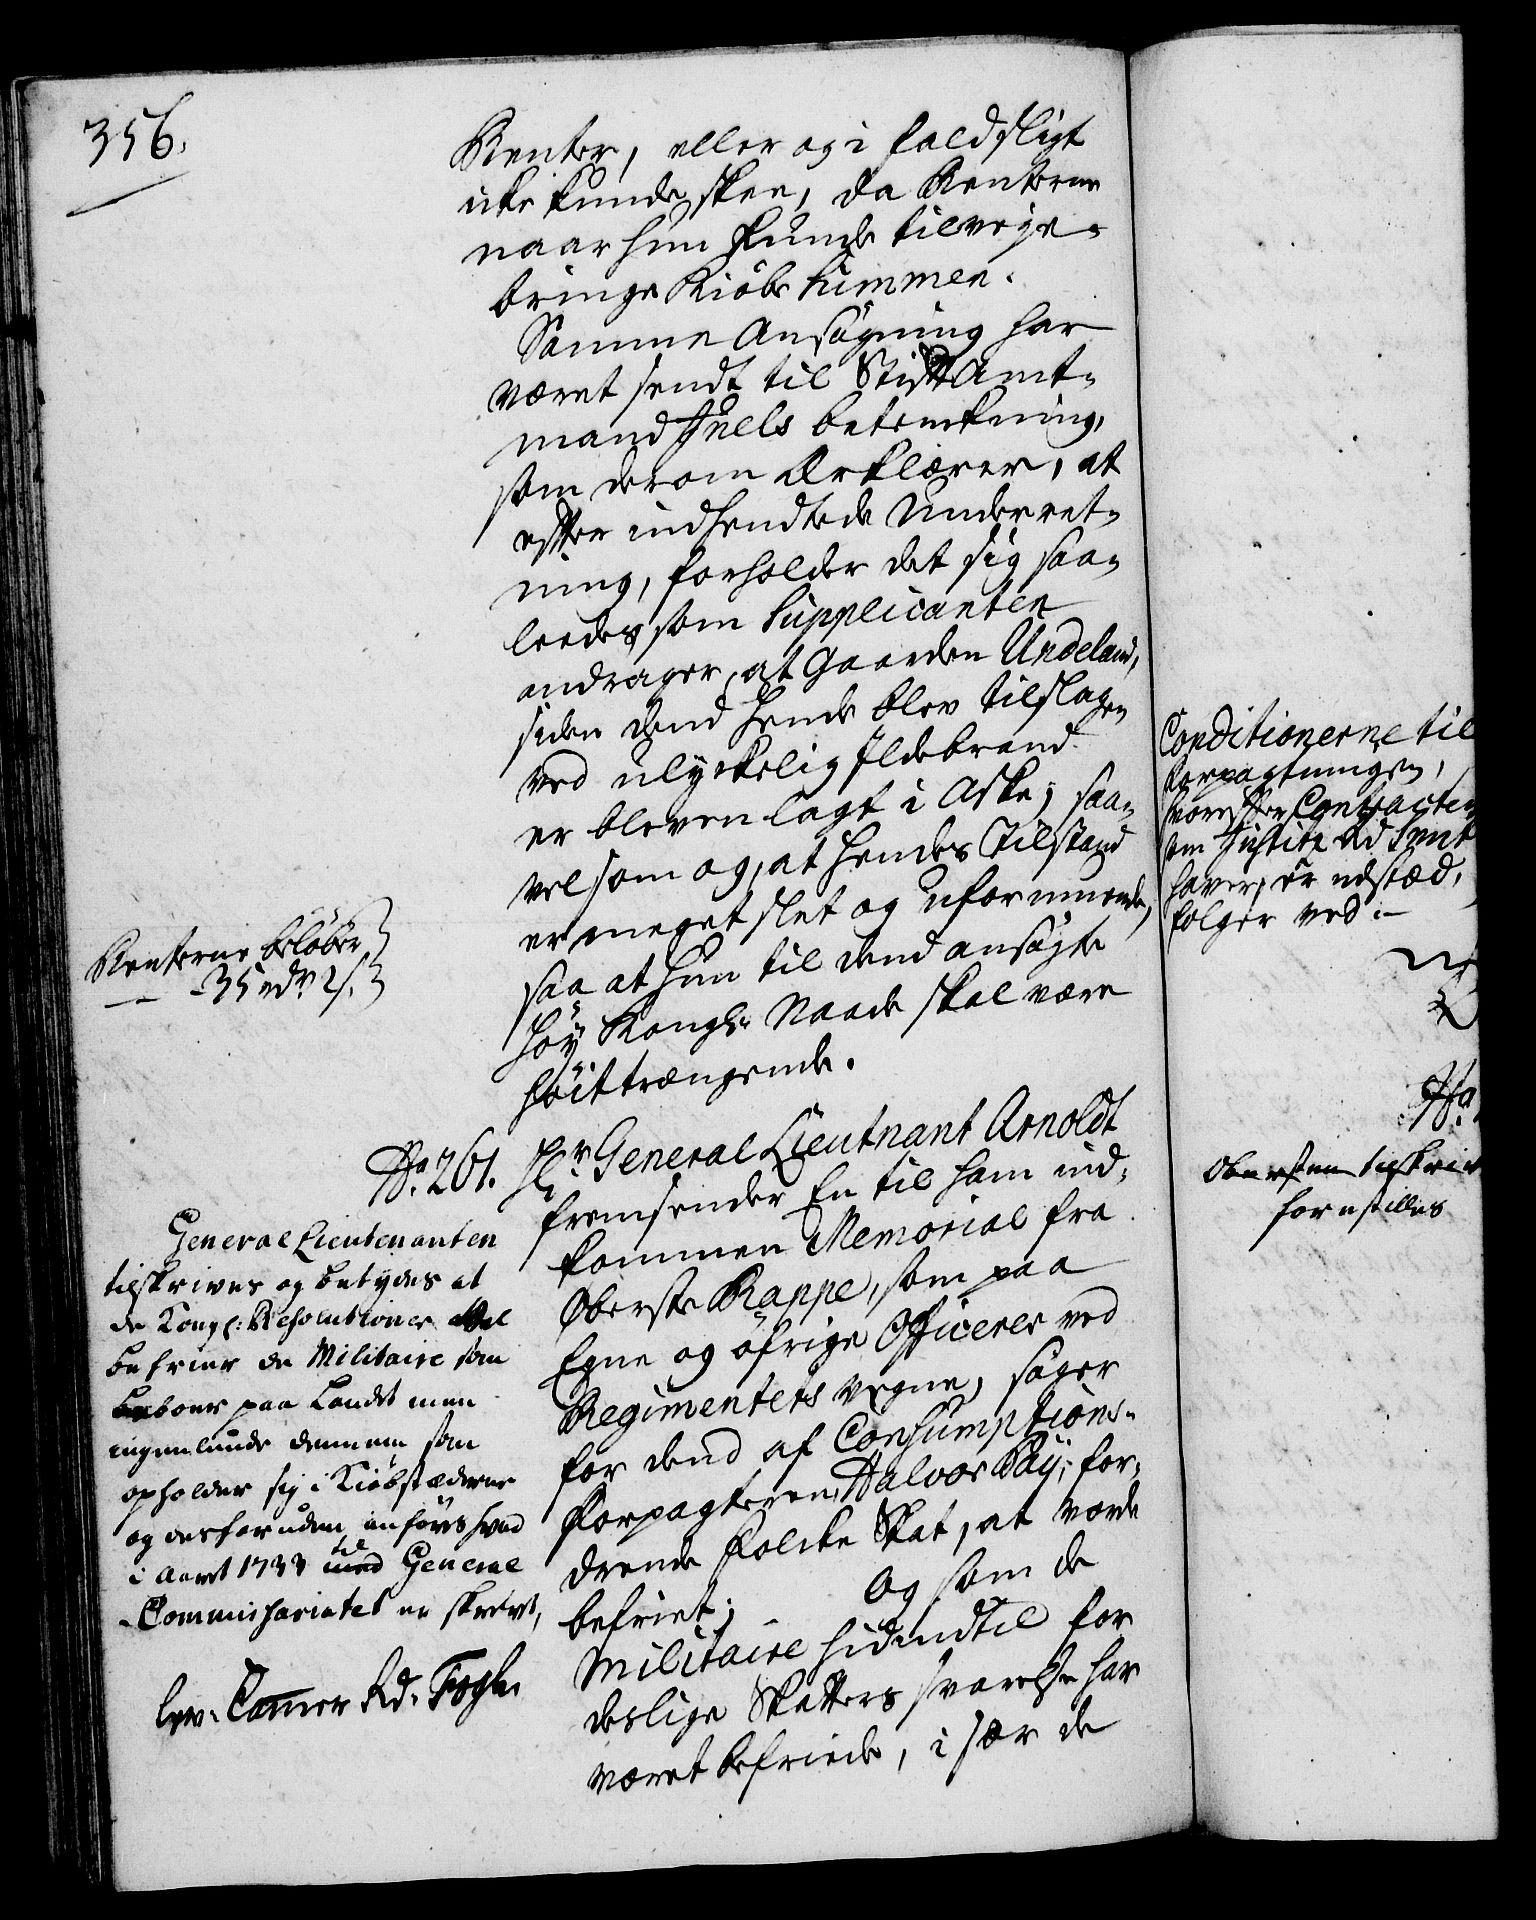 356.
Renter, eller og i fald sligt
icke kunde skee, da Renterne
naar hun kunde tilveye-
bringe Kiöbs Summen.
Samme Ansøgning har
været sendt til Stift Amt-
mand Juels betenkning,
som derom Erklærer, at
efter indhendtede Underret-
ning, forholder det sig saa-
leedes som Supplicanten
andrager, at Gaarden Undeland,
siden dend hende blev tilslagen
ved ulyckelig Ildebrand
er bleven lagt i Aske; saa-
vel som og, at hendes Tilstand
er meget slet og uformuende,
saa at hun til dend ansøgte
höy Kongl: Naade skal være
höittrængende.
Renterne beløber
- - 35 rdr 2 s.
No. 261. Hr General Lieutnant Arnoldt
fremsender En til ham ind-
kommen Memorial fra
Oberste Rappe, som paa
Egne og öfrige Officerer ved
Regimentets vegne, søger
for dend af Consumptions-
Forpagteren Halvor Bøy, for-
drende Folcke Skat, at vorde
befriet; Og som de
Militaire hidindtil for
deslige Skatters svarelse har
været befriede, i sær de
General Lieutenanten
tilskrives og betydes at
de Kongl: Resolutioner vel
befrier de Militaire som
beboer paa Landet men
ingenlunde dennem som
opholder sig i Kiøbstæderne
og desforuden anføres hvad
i Aaret 1733 til General
Commissariatet er skrevet,
lev. Cammer Rd. Fogh.
Conditionerne til
Forpagtningen,
hvorefter Contracten
som Justits Rd
haver, er udstæd,
følger ved :-
No.
Obersten tilskrives
forestilles